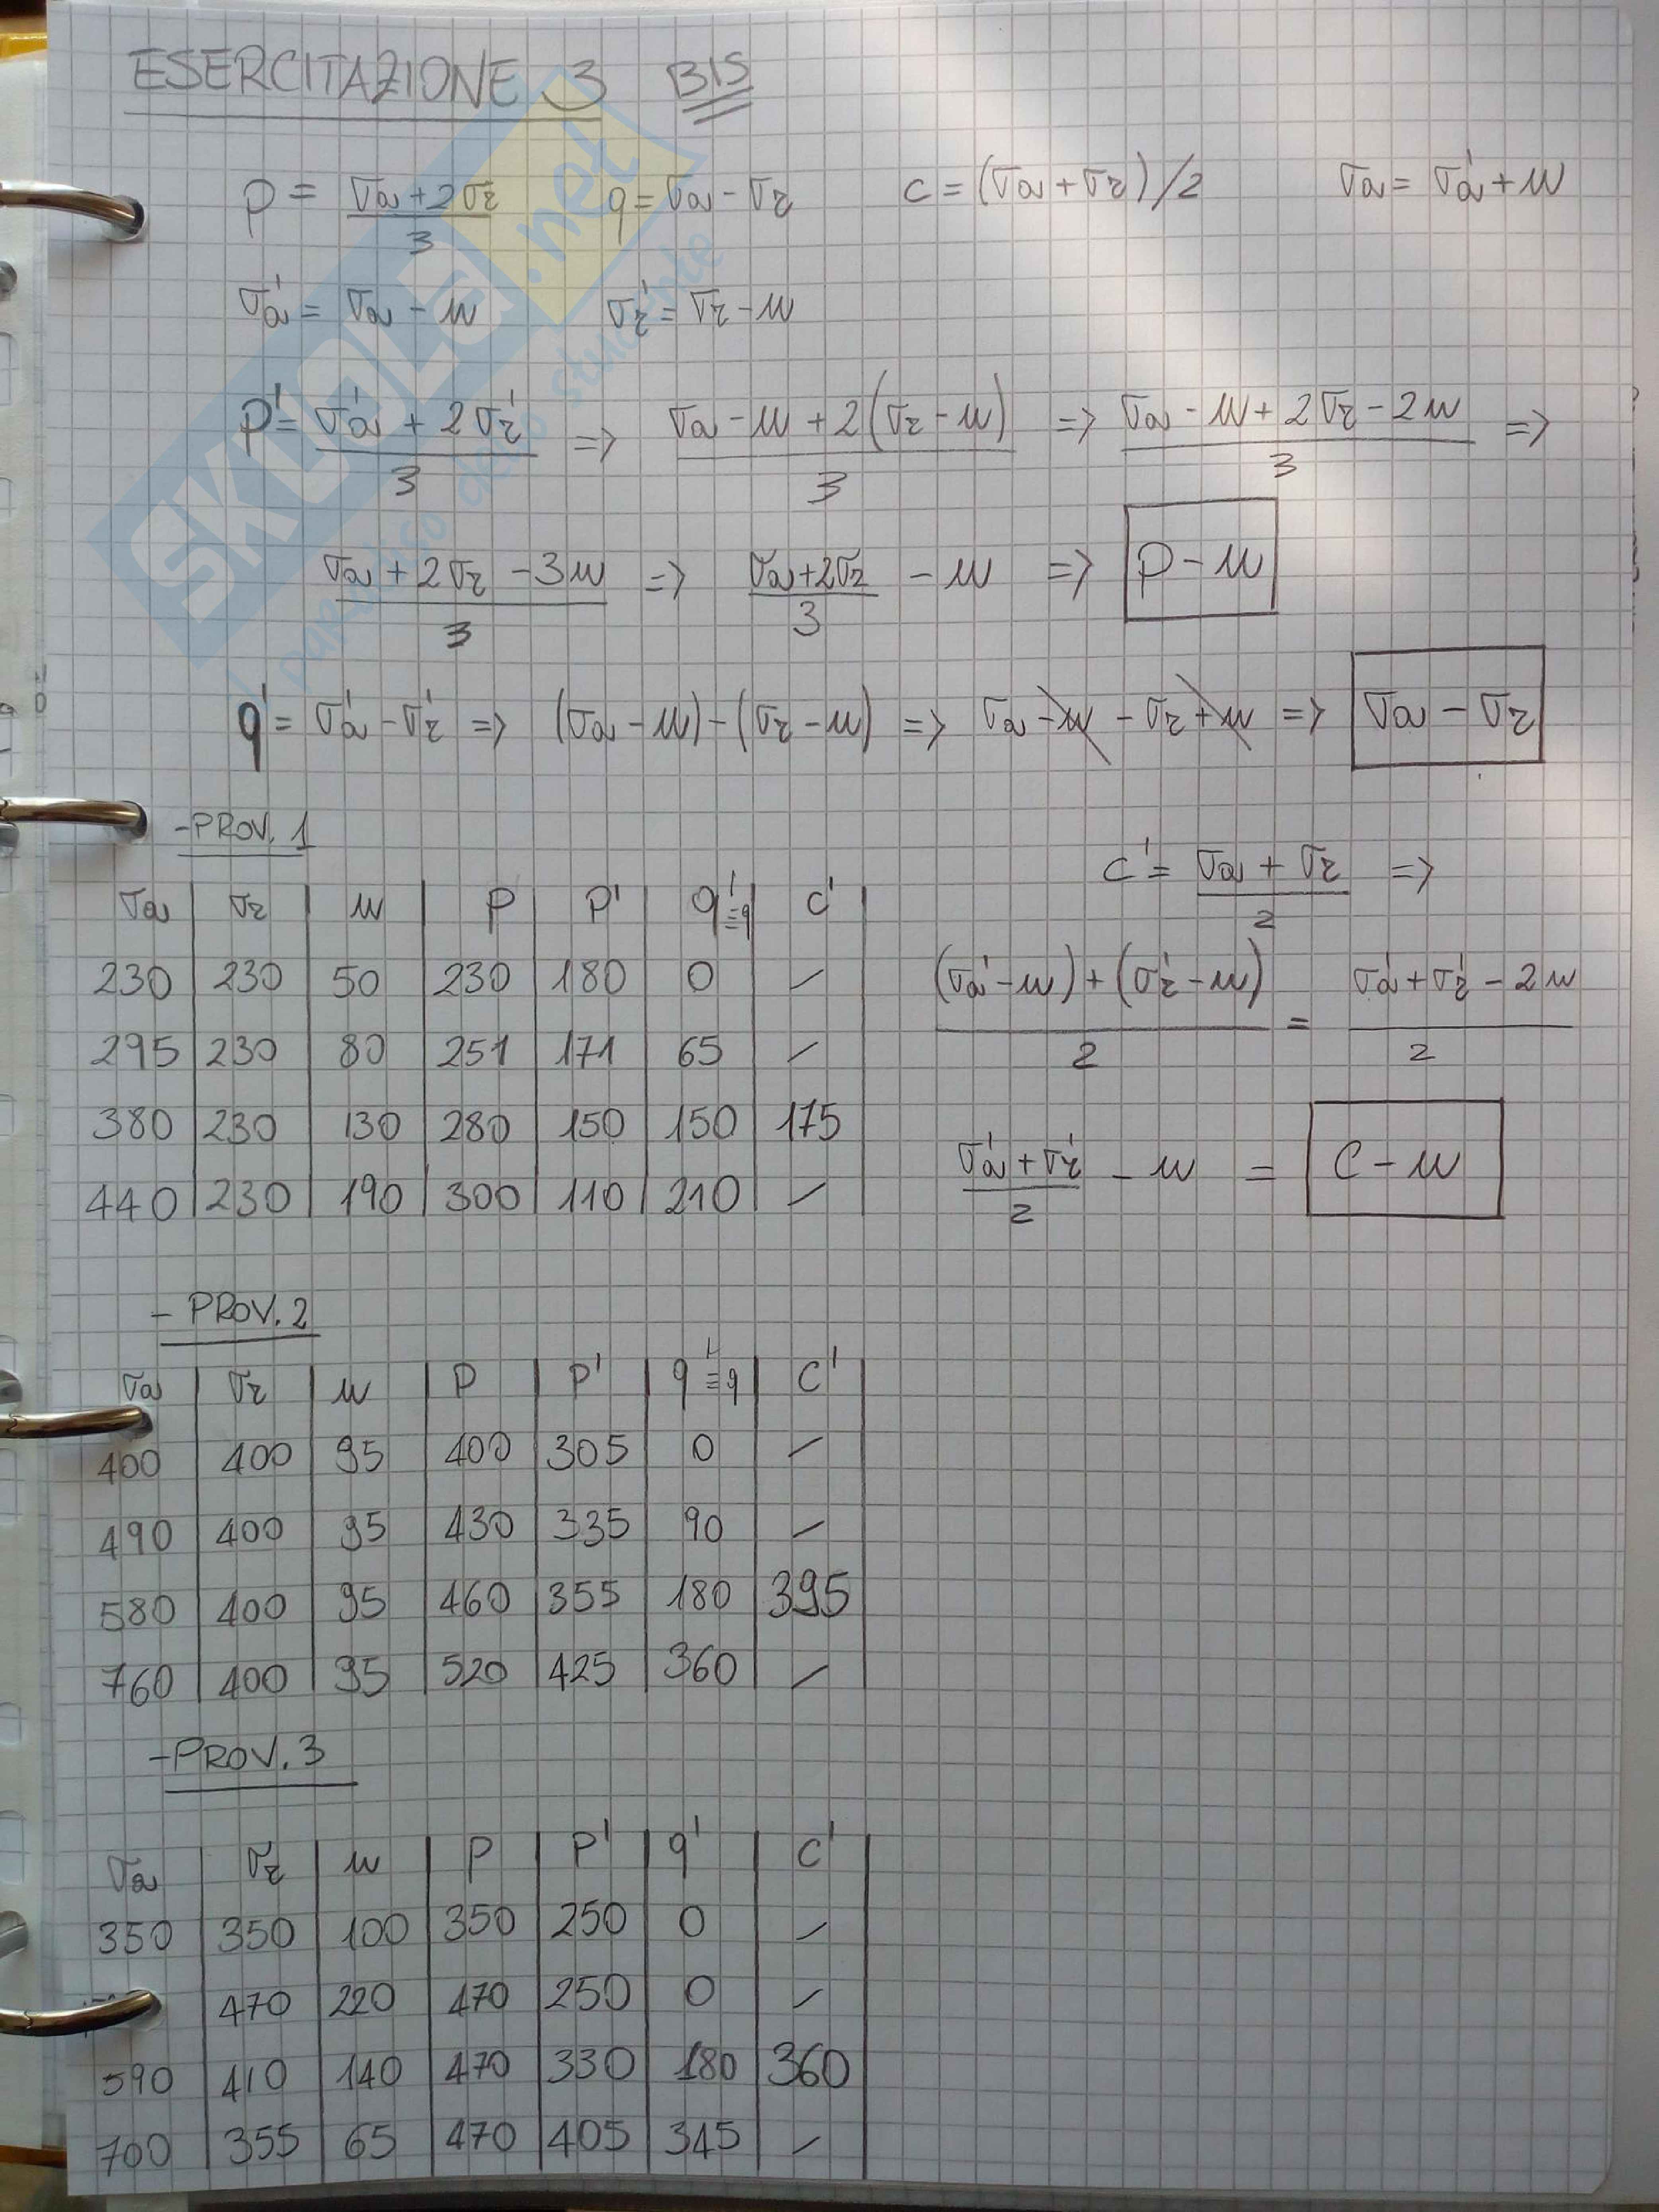 ESERCITAZIONE 3 BIS
p = (σa + 2σr)/3   q = σa - σr   c = (σa + σr)/2   σa = σa' + u
σa' = σa - u   σr' = σr - u
p' = (σa' + 2σr')/3 => (σa - u + 2(σr - u))/3 => (σa - u + 2σr - 2u)/3 =>
(σa + 2σr - 3u)/3 => (σa + 2σr)/3 - u => p - u
q' = σa' - σr' => (σa - u) - (σr - u) => σa - u - σr + u => σa - σr
- PROV. 1
σa | σr | u | p | p' | q' ≡ q | c'
230 | 230 | 50 | 230 | 180 | 0 | /
295 | 230 | 80 | 251 | 171 | 65 | /
380 | 230 | 130 | 280 | 150 | 150 | 175
440 | 230 | 190 | 300 | 110 | 210 | /
c' = (σa + σr)/2 =>
((σa' - u) + (σr' - u))/2 = (σa' + σr' - 2u)/2
(σa' + σr')/2 - u = c - u
- PROV. 2
σa | σr | u | p | p' | q' ≡ q | c'
400 | 400 | 95 | 400 | 305 | 0 | /
490 | 400 | 95 | 430 | 335 | 90 | /
580 | 400 | 95 | 460 | 355 | 180 | 395
760 | 400 | 95 | 520 | 425 | 360 | /
- PROV. 3
σa | σr | u | p | p' | q' | c'
350 | 350 | 100 | 350 | 250 | 0 | /
470 | 220 | 470 | 250 | 0 | /
590 | 410 | 140 | 470 | 330 | 180 | 360
700 | 355 | 65 | 470 | 405 | 345 | /
SKUOLA.net
il paradiso dello studente